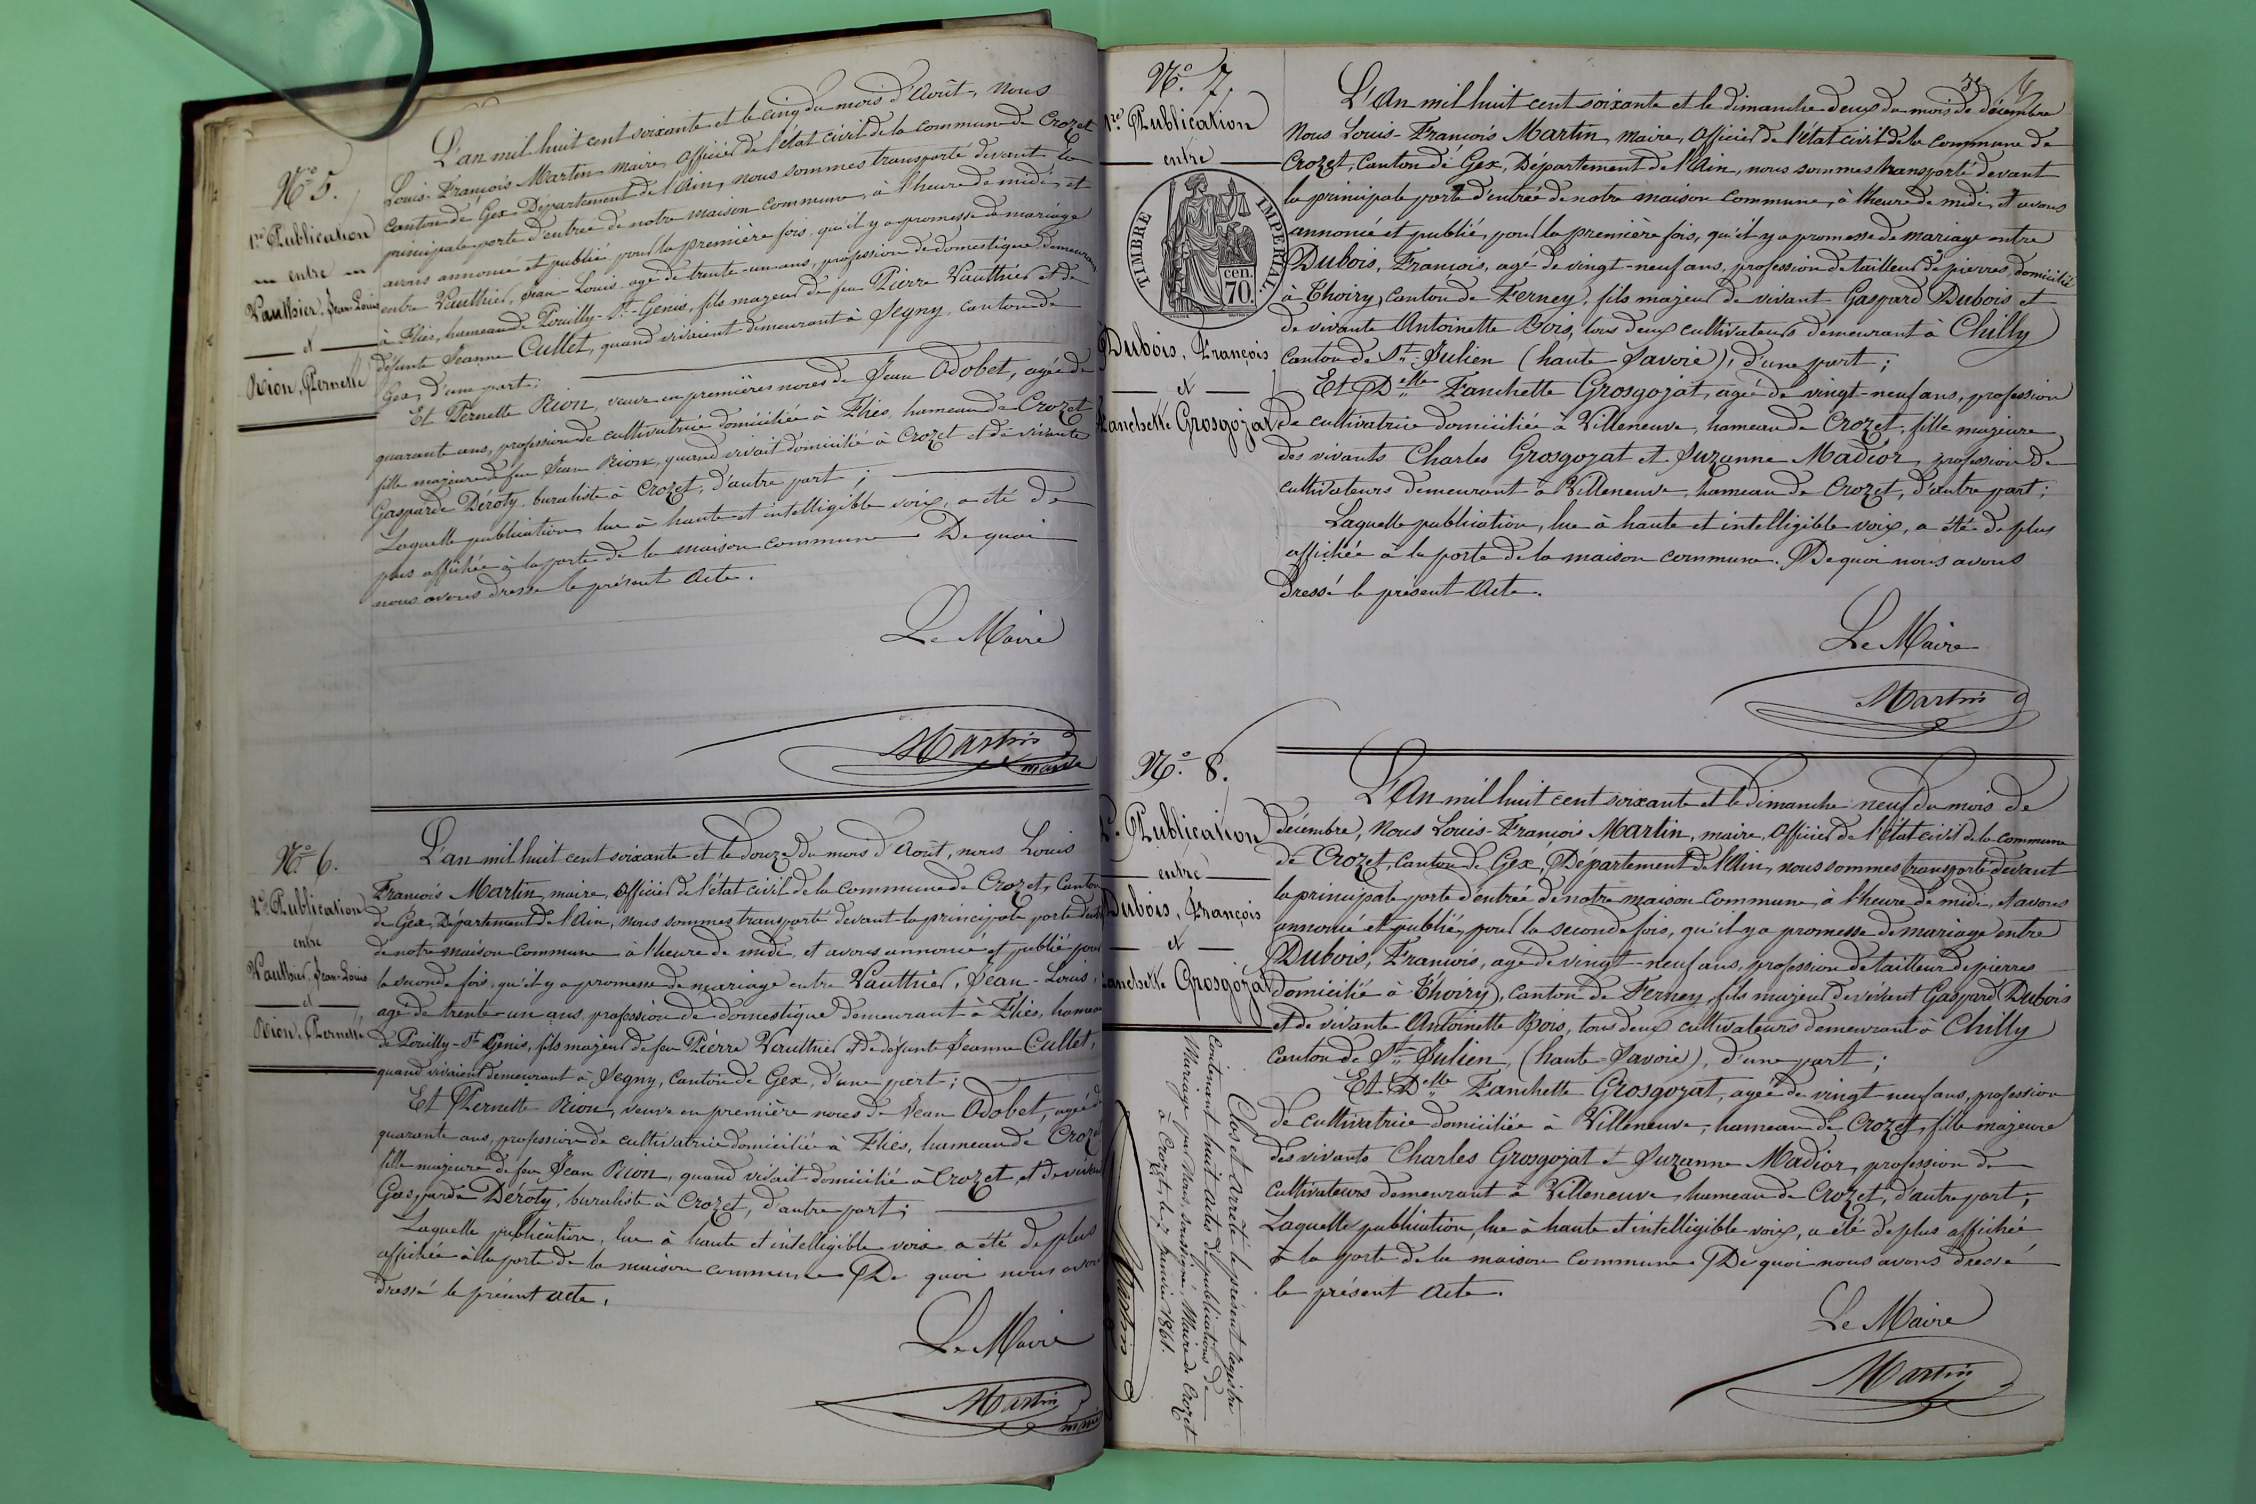 N.° 5.
1re Publication
entre
Vauthier, Jean Louis
et
Rion, Pernette
L'an mil huit cent soixante et le cinq du mois d'Août, nous
Louis-François Martin, maire, officier de l'état civil de la commune de Crozet
canton de Gex, Département de l'Ain, nous sommes transporté devant la
principale porte d'entrée de notre maison commune, à l'heure de midi, et
avons annoncé et publié, pour la première fois, qu'il y a promesse de mariage
entre Vauthier, Jean-Louis agé de trente-un ans, profession de domestique demeurant
à Fliés, hameau de Pouilly-St-Genis, fils majeur de feu Pierre Vauthier et de
défunte Jeanne Cullet, quand vivaient demeurant à Segny, canton de
Gex, d'une part;
Et Pernette Rion, veuve en premières noces de Jean Odobet, agée de
quarante ans, profession de cultivatrice domiciliée à Fliès, hameau de Crozet
fille majeure de feu Jean Rion, quand vivait domicilié à Crozet et de vivante
Gasparde Déroty, buraliste à Crozet, d'autre part;
Laquelle publication, lue à haute et intelligible voix, a été de
plus affichée à la porte de la maison commune. De quoi
nous avons dressé le présent Acte.
Le Maire
Martin
maire
N.° 6.
2e Publication
entre
Vauthier, Jean-Louis
et
Rion, Pernette
L'an mil huit cent soixante et le douze du mois d'Août, nous Louis
François Martin, maire, officier de l'état civil de la commune de Crozet, Canton
de Gex, Département de l'Ain, nous sommes transporté devant la principale porte
de notre maison commune à l'heure de midi, et avons annoncé et publié pour
la seconde fois, qu'il y a promesse de mariage entre Vauthier, Jean-Louis,
agé de trente-un ans, profession de domestique demeurant à Fliés, hameau
de Pouilly-St Genis, fils majeur de feu Pierre Vauthier et de défunte Jeanne Cullet,
quand vivaient demeurant à Segny, Canton de Gex, d'une part;
Et Pernette Rion, veuve en première noces de Jean Odobet, agée de
quarante ans, profession de cultivatrice domiciliée à Fliès, hameau de Crozet
fille majeure de feu Jean Rion, quand vivait domicilié à Crozet et de vivante
Gasparde Déroty, buraliste à Crozet, d'autre part;
Laquelle publication, lue à haute et intelligible voix a été de plus
affichée à la porte de la maison commune. De quoi nous avons
dressé le présent acte.
Le Maire
Martin
maire
N.° 7.
1re Publication
entre
TIMBRE IMPERIAL.
70. cen.
Dubois, François
et
Fanchette Grosgojat
L'An mil huit cent soixante et le dimanche deux du mois de décembre
Nous Louis-François Martin, maire, Officier de l'état civil de la commune de
Crozet, Canton de Gex, Département de l'Ain, nous sommes transporté devant
la principale porte d'entrée de notre maison commune, à l'heure de midi, et avons
annoncé et publié, pour la première fois, qu'il y a promesse de mariage entre
Dubois, François, agé de vingt-neuf ans, profession de tailleur de pierres, domicilié
à Thoiry, Canton de Ferney, fils majeur de vivant Gaspard Dubois et
de vivante Antoinette Bois, tous deux cultivateurs demeurant à Chilly
Canton de St Julien (haute-Savoie), d'une part;
Et Delle Fanchette Grosgojat, agée de vingt-neuf ans, profession
de cultivatrice domiciliée à Villeneuve, hameau de Crozet, fille majeure
des vivants Charles Grosgojat et Suzanne Madior, profession de
cultivateurs demeurant à Villeneuve, hameau de Crozet, d'autre part;
Laquelle publication, lue à haute et intelligible voix, a été de plus
affichée à la porte de la maison commune. De quoi nous avons
dressé le présent Acte.
Le Maire
Martin
N.° 8.
2e Publication
entre
Dubois, François
et
Fanchette Grosgojat
L'An mil huit cent soixante et le dimanche neuf du mois de
décembre, Nous Louis-François Martin, maire, Officier de l'état civil de la commune
de Crozet, Canton de Gex, Département de l'Ain, nous sommes transporté devant
la principale porte d'entrée de notre maison commune, à l'heure de midi, et avons
annoncé et publié, pour la seconde fois, qu'il y a promesse de mariage entre
Dubois, François, agé de vingt-neuf ans, profession de tailleur de pierres
domicilié à Thoiry, canton de Ferney, fils majeur de vivant Gaspard Dubois
et de vivante Antoinette Bois, tous deux cultivateurs demeurant à Chilly
Canton de St Julien, (haute-Savoie), d'une part;
Et Delle Fanchette Grosgojat, agée de vingt neuf ans, profession
de cultivatrice domiciliée à Villeneuve, hameau de Crozet, fille majeure
des vivants Charles Grosgojat et Suzanne Madior, profession de
cultivateurs demeurant à Villeneuve, hameau de Crozet, d'autre part;
Laquelle publication, lue à haute et intelligible voix, a été de plus affichée
à la porte de la maison commune. De quoi nous avons dressé
le présent Acte.
Le Maire
Martin
Clos et arrêté le présent registre
contenant huit actes de publications de
Mariage par Nous, soussigné, Maire de Crozet
à Crozet, le janvier 1861.
Martin